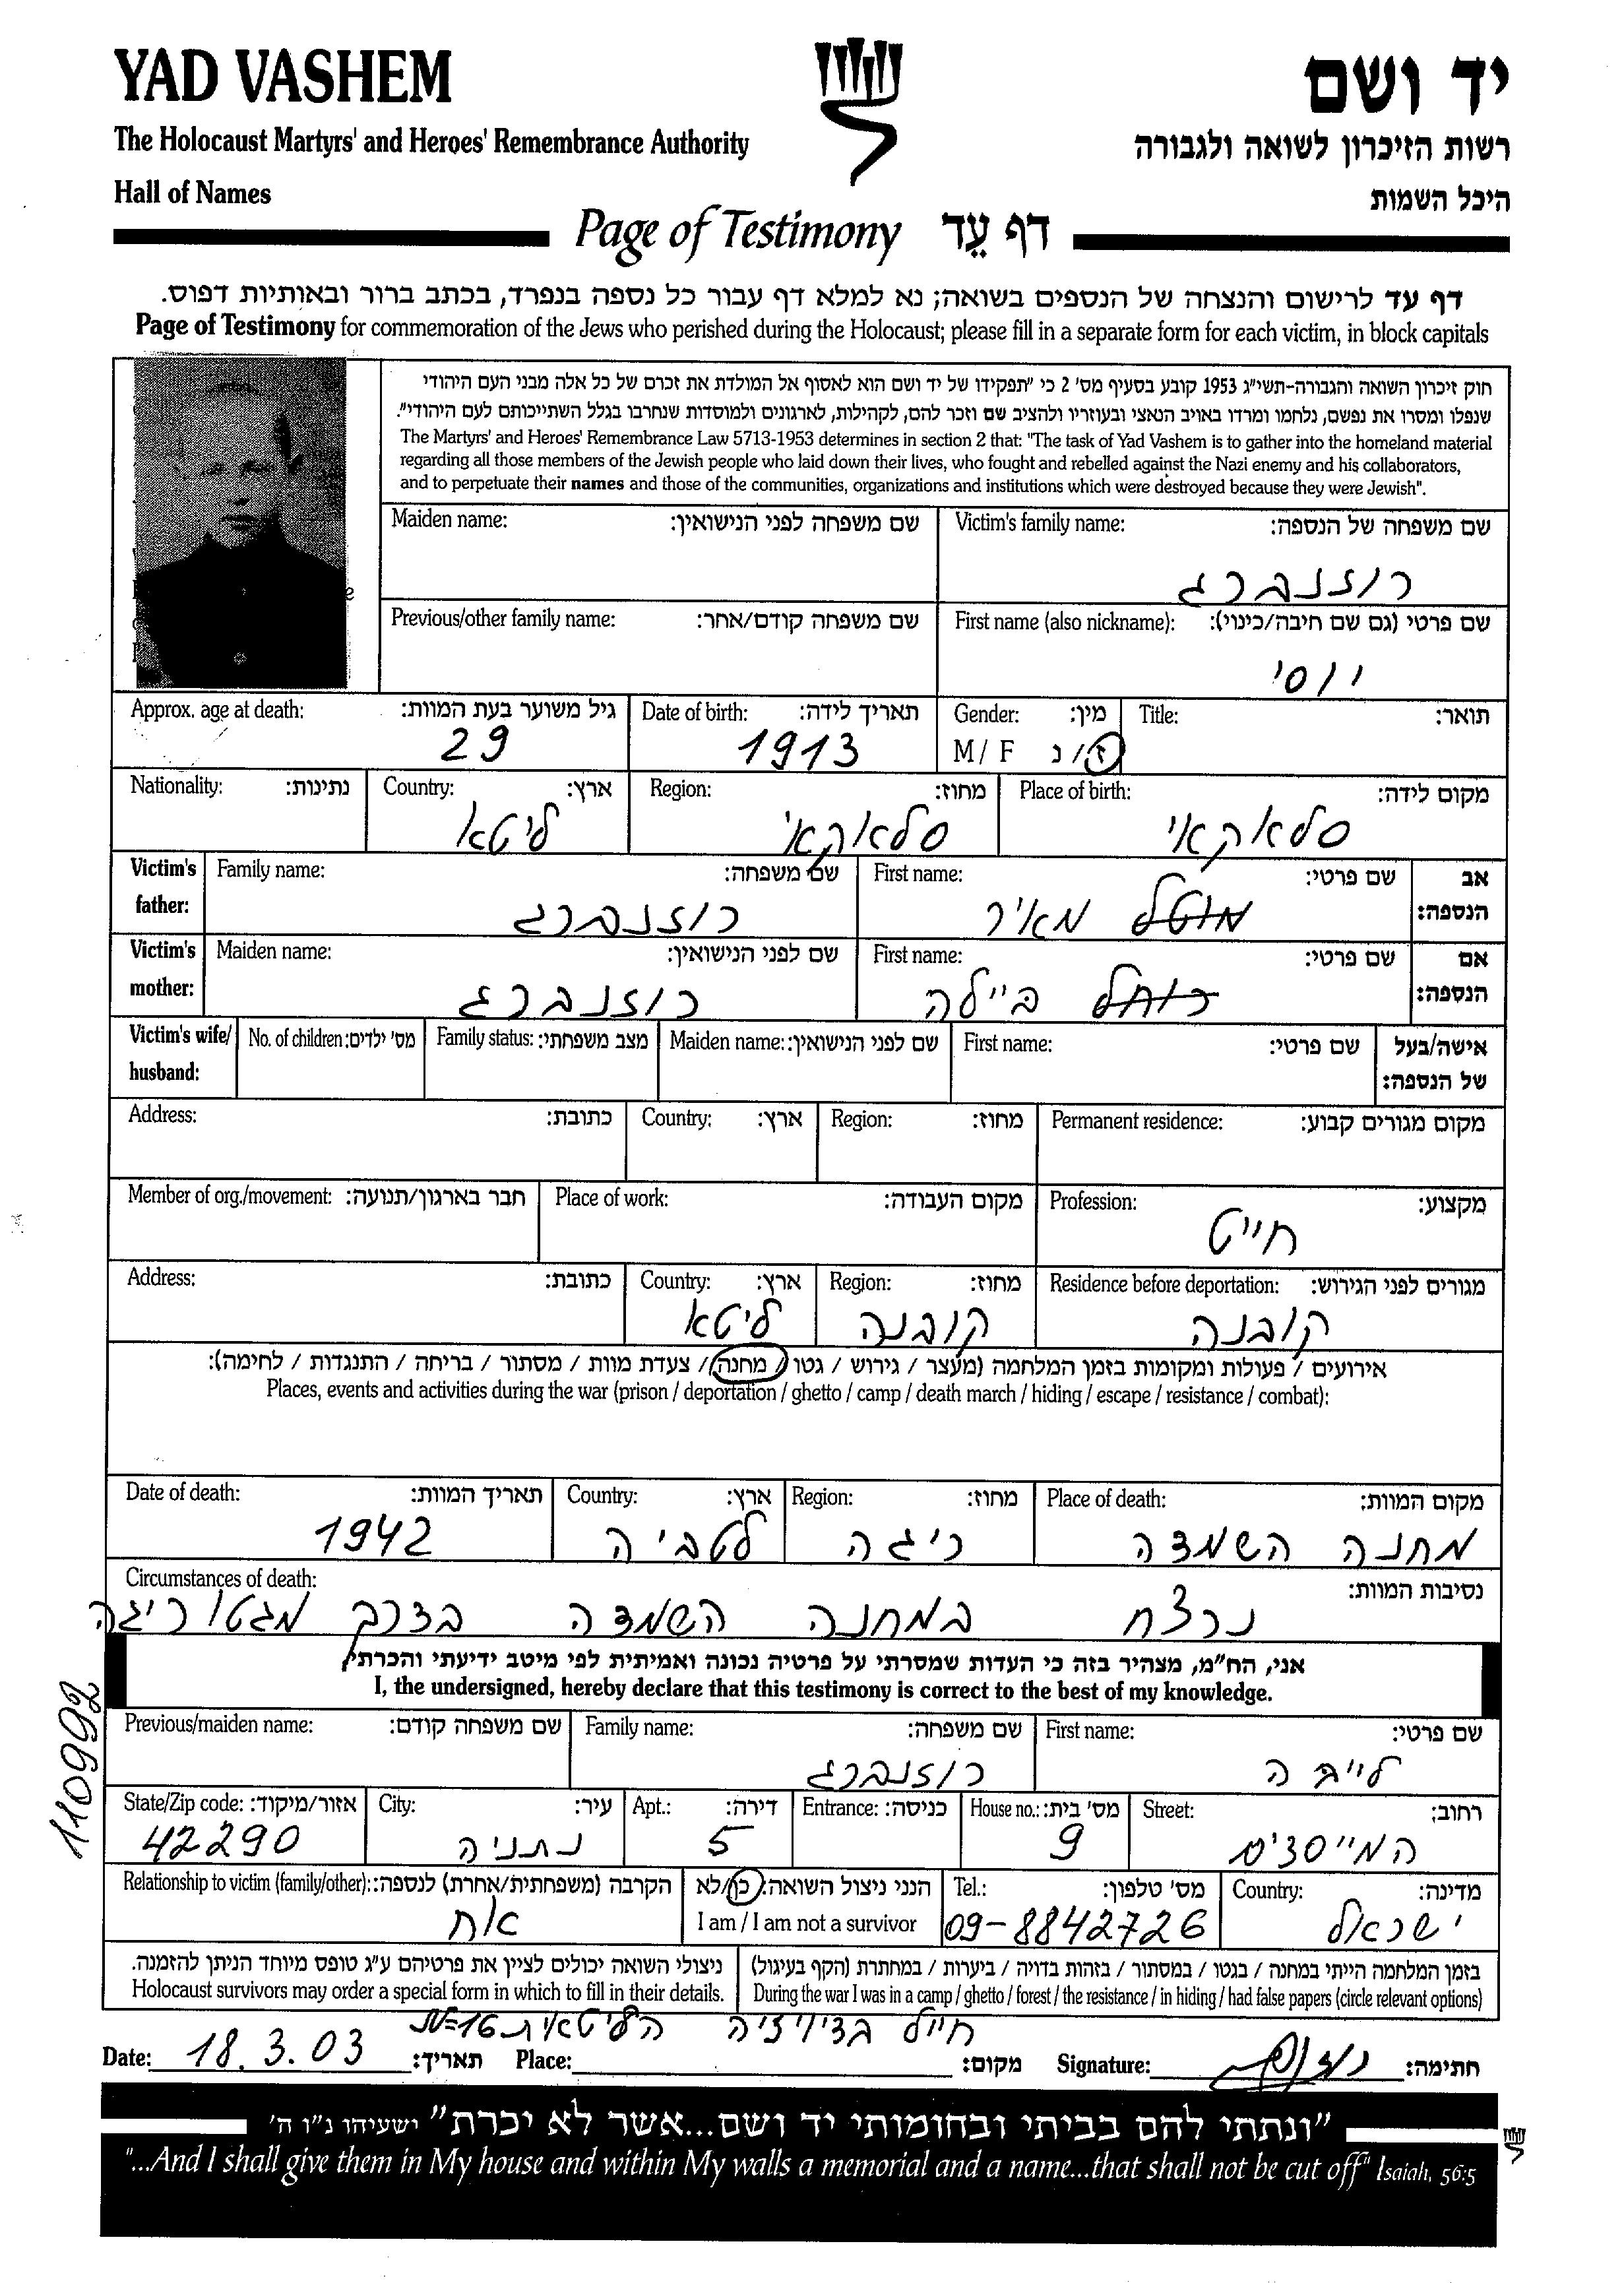 YAD VASHEM
יד ושם
The Holocaust Martyrs' and Heroes' Remembrance Authority
רשות הזיכרון לשואה ולגבורה
Hall of Names
היכל השמות
Page of Testimony דף עֵד
דף עד לרישום והנצחה של הנספים בשואה; נא למלא דף עבור כל נספה בנפרד, בכתב ברור ובאותיות דפוס.
Page of Testimony for commemoration of the Jews who perished during the Holocaust; please fill in a separate form for each victim, in block capitals
חוק זיכרון השואה והגבורה-תשי"ג 1953 קובע בסעיף מס' 2 כי "תפקידו של יד ושם הוא לאסוף אל המולדת את זכרם של כל אלה מבני העם היהודי
שנפלו ומסרו את נפשם, נלחמו ומרדו באויב הנאצי ובעוזריו ולהציב שם וזכר להם, לקהילות, לארגונים ולמוסדות שנחרבו בגלל השתייכותם לעם היהודי".
The Martyrs' and Heroes' Remembrance Law 5713-1953 determines in section 2 that: "The task of Yad Vashem is to gather into the homeland material
regarding all those members of the Jewish people who laid down their lives, who fought and rebelled against the Nazi enemy and his collaborators,
and to perpetuate their names and those of the communities, organizations and institutions which were destroyed because they were Jewish".
Maiden name: שם משפחה לפני הנישואין: Victim's family name: שם משפחה של הנספה:
רוזנברג
Previous/other family name: שם משפחה קודם/אחר: First name (also nickname): שם פרטי (גם שם חיבה/כינוי):
יוסי
Approx. age at death: גיל משוער בעת המוות: Date of birth: תאריך לידה: Gender: מין: Title: תואר:
29 1913 M / F ז/נ
Nationality: נתינות: Country: ארץ: Region: מחוז: Place of birth: מקום לידה:
ליטא סלאקאי סלאקאי
Victim's father: Family name: שם משפחה: First name: שם פרטי: אב הנספה:
רוזנברג מוטל מאיר
Victim's mother: Maiden name: שם לפני הנישואין: First name: שם פרטי: אם הנספה:
רוזנברג רוחל ביילה
Victim's wife/ husband: No. of children: מס' ילדים: Family status: מצב משפחתי: Maiden name: שם לפני הנישואין: First name: שם פרטי: אישה/בעל של הנספה:
Address: כתובת: Country: ארץ: Region: מחוז: Permanent residence: מקום מגורים קבוע:
Member of org./movement: חבר בארגון/תנועה: Place of work: מקום העבודה: Profession: מקצוע:
חייט
Address: כתובת: Country: ארץ: Region: מחוז: Residence before deportation: מגורים לפני הגירוש:
ליטא קובנה קובנה
אירועים / פעולות ומקומות בזמן המלחמה (מעצר / גירוש / גטו / מחנה / צעדת מוות / מסתור / בריחה / התנגדות / לחימה):
Places, events and activities during the war (prison / deportation / ghetto / camp / death march / hiding / escape / resistance / combat):
Date of death: תאריך המוות: Country: ארץ: Region: מחוז: Place of death: מקום המוות:
1942 לטביה ריגה מחנה השמדה
Circumstances of death: נסיבות המוות:
נרצח במחנה השמדה בדרך מגטו ריגה
אני, הח"מ, מצהיר בזה כי העדות שמסרתי על פרטיה נכונה ואמיתית לפי מיטב ידיעתי והכרתי
I, the undersigned, hereby declare that this testimony is correct to the best of my knowledge.
110992
Previous/maiden name: שם משפחה קודם: Family name: שם משפחה: First name: שם פרטי:
רוזנברג לייבה
State/Zip code: אזור/מיקוד: City: עיר: Apt.: דירה: Entrance: כניסה: House no.: מס' בית: Street: רחוב:
42290 נתניה 5 9 המייסדים
Relationship to victim (family/other): הקרבה (משפחתית/אחרת) לנספה: הנני ניצול השואה: כן/לא Tel.: מס' טלפון: Country: מדינה:
אח I am / I am not a survivor 09-8842726 ישראל
ניצולי השואה יכולים לציין את פרטיהם ע"ג טופס מיוחד הניתן להזמנה. בזמן המלחמה הייתי במחנה / בגטו / במסתור / בזהות בדויה / ביערות / במחתרת (הקף בעיגול)
Holocaust survivors may order a special form in which to fill in their details. During the war I was in a camp / ghetto / forest / the resistance / in hiding / had false papers (circle relevant options)
חייל בדיויזיה הליטאית 16
Date: 18.3.03 תאריך: Place: מקום: Signature: חתימה:
"ונתתי להם בביתי ובחומותי יד ושם...אשר לא יכרת" ישעיהו נ"ו ה'
"...And I shall give them in My house and within My walls a memorial and a name...that shall not be cut off" Isaiah, 56:5